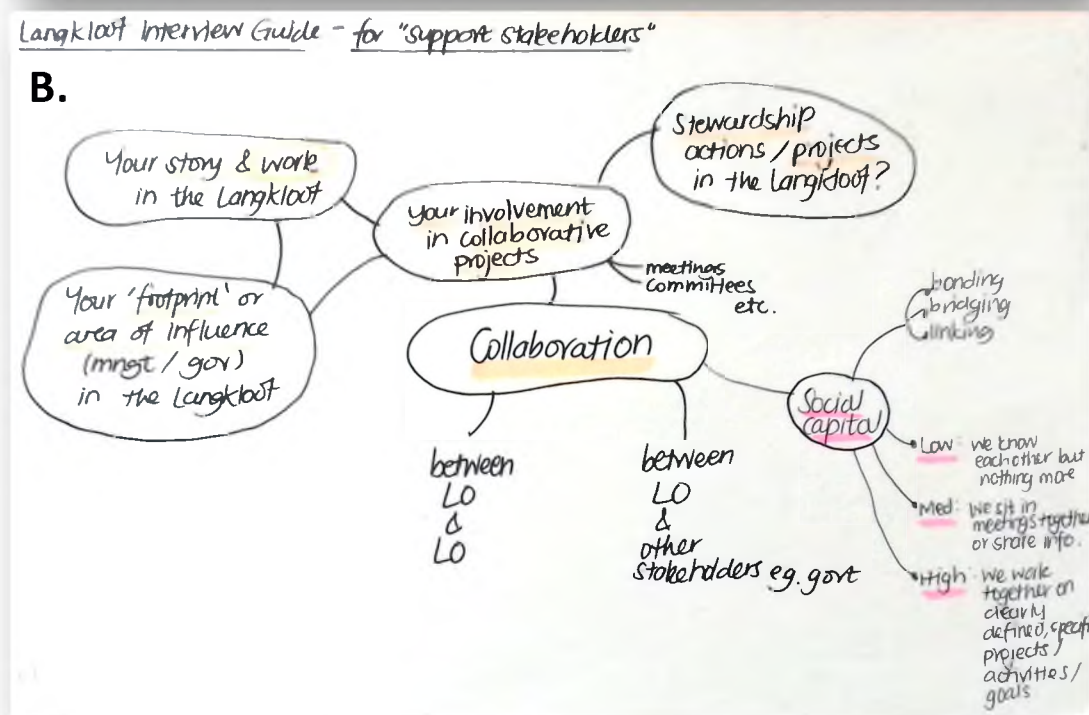 Langkloof Interview Guide - for "support stakeholders"
B.
Your story & work
in the Langkloof
Your 'footprint' or
area of influence
(mngt / gov)
in the Langkloof
Your involvement
in collaborative
projects
Stewardship
actions / projects
in the Langkloof?
meetings
committees
etc.
Collaboration
between
LO
&
LO
between
LO
&
other
stakeholders eg. govt
Social
capital
bonding
bridging
linking
Low: we know
each other but
nothing more
Med: we sit in
meetings together
or share info.
High: we work
together on
clearly
defined, specifi
projects /
activities /
goals